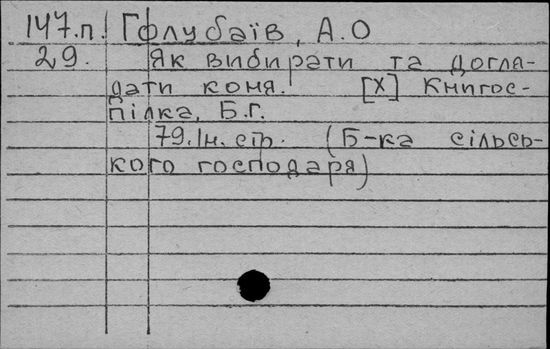 147.п. Голубаїв, А.О
29. Як вибирати та догля-
дати коня. [X] Книгос-
пілка, Б.г.
79.1н. стр. (Б-ка сільсь-
кого господаря)